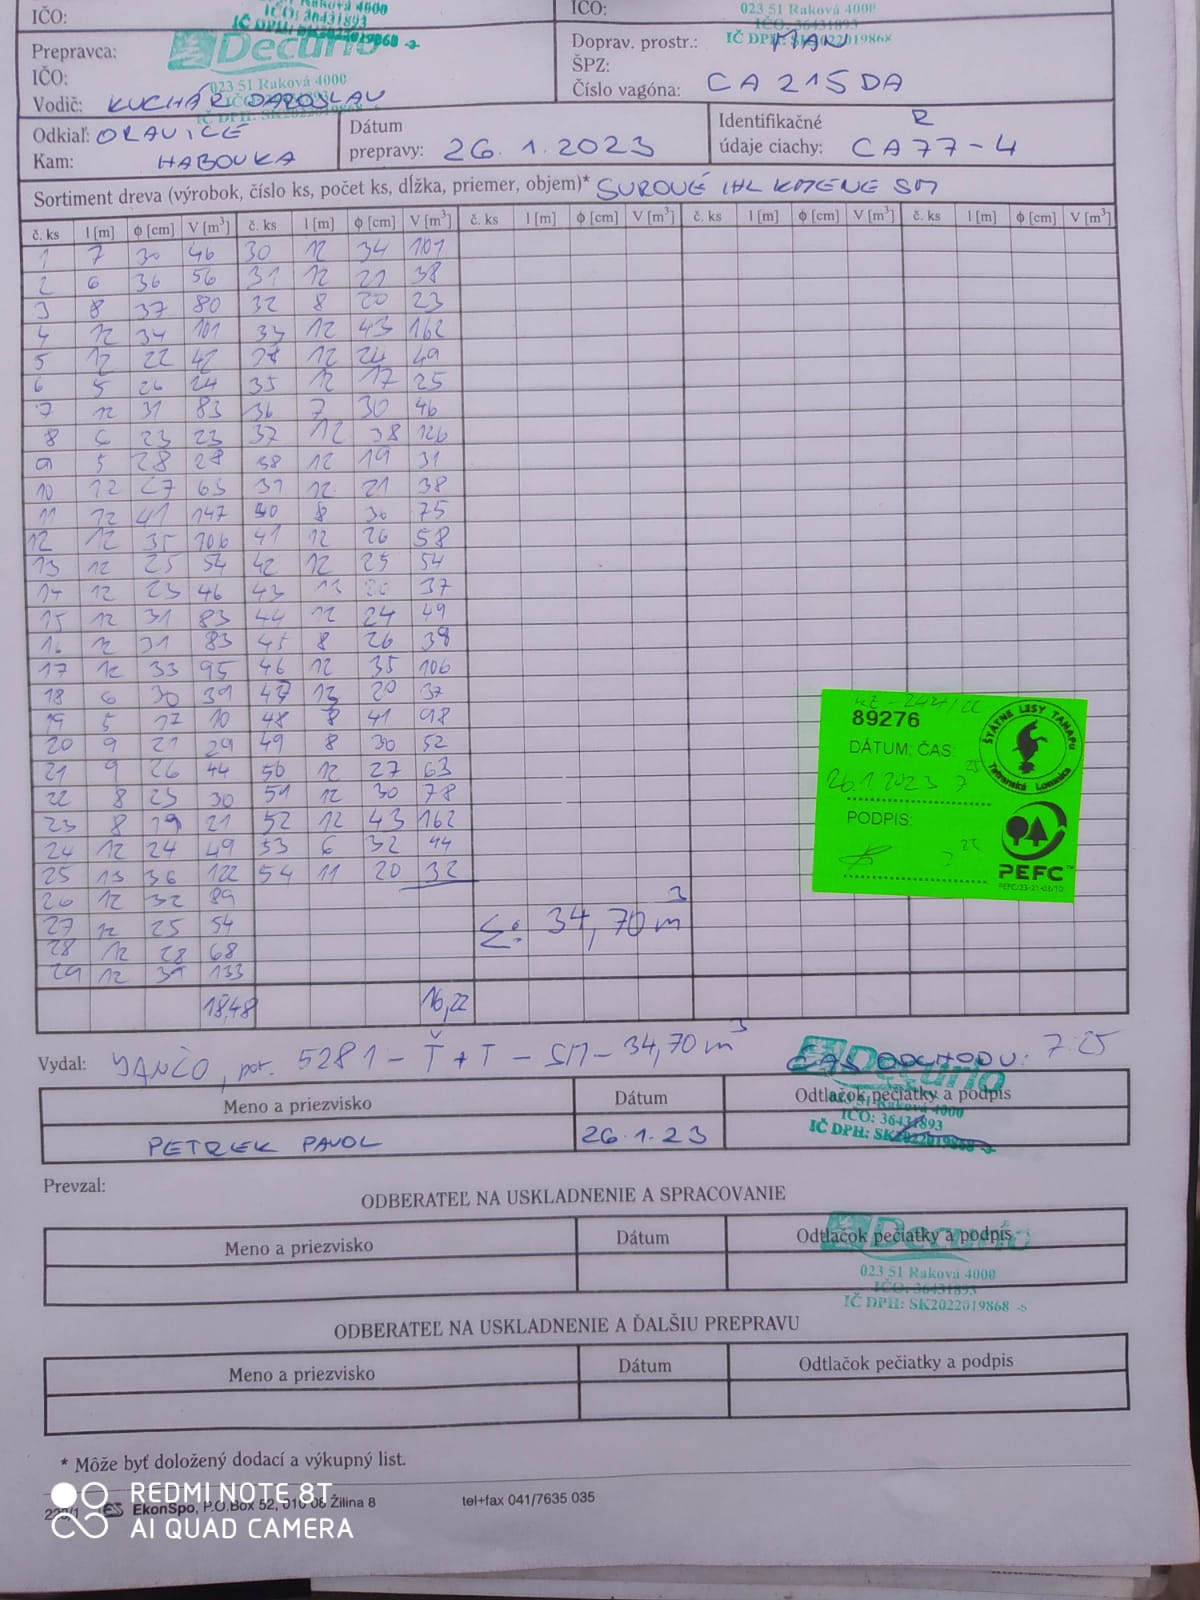 IČO:
IČO: 36431893
IČ DPH: SK2022019868
IČO:
023 51 Raková 4000
IČO: 36431893
IČ DPH: SK2022019868
Prepravca:
Decurio
Doprav. prostr.: MAN
IČO:
023 51 Raková 4000
ŠPZ:
Číslo vagóna: CA 215 DA
Vodič: KUCHÁR DAROSLAV
Odkiaľ: ORAVICE
Kam: HABOVKA
Dátum
prepravy: 26. 1. 2023
Identifikačné R
údaje ciachy: CA77-4
Sortiment dreva (výrobok, číslo ks, počet ks, dĺžka, priemer, objem)* SUROVÉ IHL KMENE SM
č. ks l [m] ϕ [cm] V [m³] č. ks l [m] ϕ [cm] V [m³] č. ks l [m] ϕ [cm] V [m³] č. ks l [m] ϕ [cm] V [m³] č. ks l [m] ϕ [cm] V [m³]
1 7 30 46 30 12 34 101
2 6 36 56 31 12 21 38
3 8 37 80 32 8 20 23
4 12 34 101 33 12 43 162
5 12 22 42 34 12 24 49
6 5 26 24 35 12 17 25
7 12 31 83 36 7 30 46
8 6 23 23 37 12 38 126
9 5 28 28 38 12 19 31
10 12 27 63 39 12 21 38
11 12 41 147 40 8 36 75
12 12 35 106 41 12 26 58
13 12 25 54 42 12 25 54
14 12 23 46 43 13 20 37
15 12 31 83 44 12 24 49
16 12 31 83 45 8 26 39
17 12 33 95 46 12 35 106
18 6 30 39 47 13 20 37
19 5 17 10 48 8 41 98
20 9 21 29 49 8 30 52
21 9 26 44 50 12 27 63
22 8 23 30 51 12 30 78
23 8 19 21 52 12 43 162
24 12 24 49 53 6 32 44
25 13 36 122 54 11 20 32
26 12 32 89
27 12 25 54
28 12 28 68
29 12 39 133
Σ: 34,70 m³
18,48 16,22
89276
DÁTUM, ČAS:
26.1.2023 7 25
PODPIS:
ŠTÁTNE LESY TANAPu
Tatranská Lomnica
PEFC™
PEFC/23-21-03/10
Vydal: JANČO, por. 5281 - Ť + T - SM - 34,70 m³
ČAS ODCHODU: 7:25
Decurio
Meno a priezvisko Dátum Odtlačok pečiatky a podpis
023 51 Raková 4000
IČO: 36431893
IČ DPH: SK2022019868
PETREK PAVOL 26.1.23
Prevzal:
ODBERATEĽ NA USKLADNENIE A SPRACOVANIE
Decurio
Meno a priezvisko Dátum Odtlačok pečiatky a podpis
023 51 Raková 4000
IČO: 36431893
IČ DPH: SK2022019868
ODBERATEĽ NA USKLADNENIE A ĎALŠIU PREPRAVU
Meno a priezvisko Dátum Odtlačok pečiatky a podpis
* Môže byť doložený dodací a výkupný list.
ES EkonSpo, P.O.Box 52, 010 08 Žilina 8 tel+fax 041/7635 035
REDMI NOTE 8T
AI QUAD CAMERA